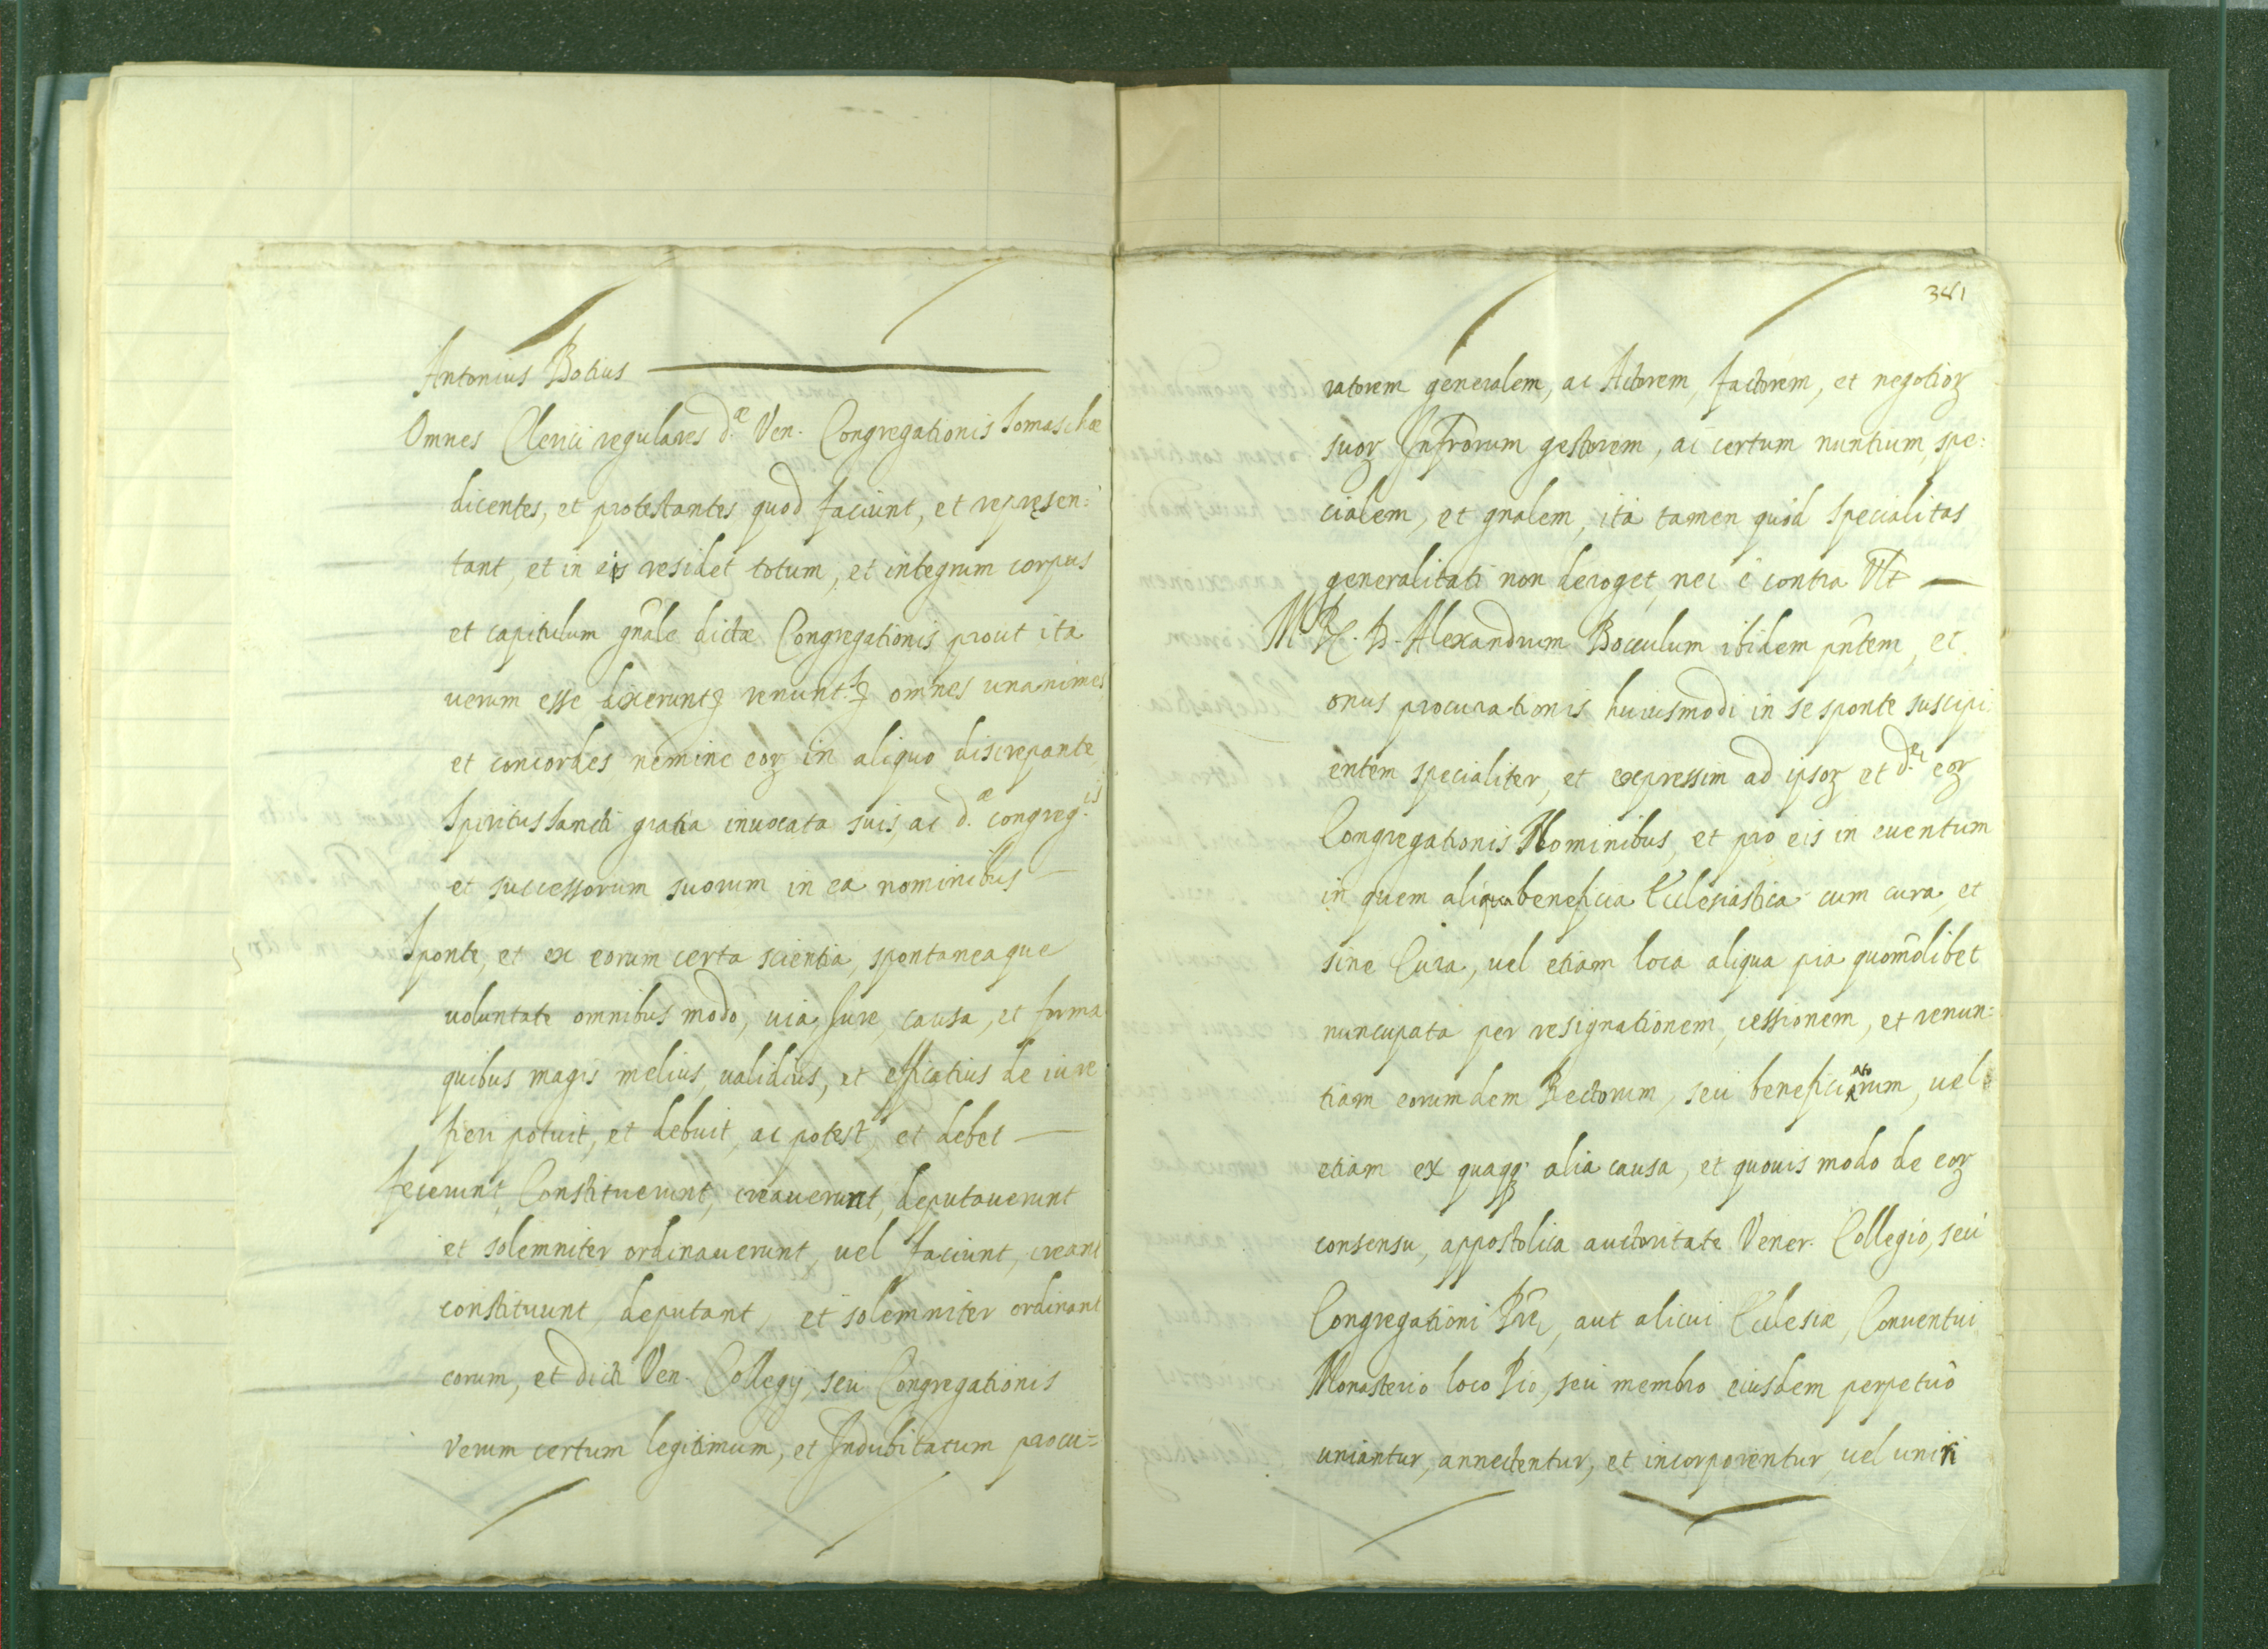 Antonius Botius
Omnes Clerici regulares d.æ Ven. Congregationis Somaschæ
dicentes, et protestantes quod faciunt, et represen:
tant, et in eis residet totum, et integrum corpus
et capitulum gñale dictæ Congregationis prout ita
uerum esse dixerunt omnes unanimes
et concordes nemine eoꝝ in aliquo discrepante
Spiritus Sancti gratia inuocata suis, ac d.æ congreg.is
et successorum suorum in ea nominibus
Sponte, et ex eorum certa scientia, spontaneaque
uoluntate omnibus modo, uia, Iure, causa, et forma
quibus magis melius, ualidius, et efficatius de iure
fieri potuit, et debuit, ac potest, et debet
fecerunt, Constituerunt, creauerunt, deputauerunt
et solemniter ordinauerunt, uel faciunt, creant
constituunt, deputant, et solemniter ordinant
eorum, et dicti Ven. Collegij, seu Congregationis
Verum certum legitimum, et Indubitatum procu=
381
ratorem generalem, ac Actorem, factorem, et negotioꝝ
suoꝝ Infrõrum gestorem, ac certum nuntium, spe:
cialem, et gñalem, ità tamen quòd specialitas
generalitati non deroget, nec è contra Vlt
M. R. D. Alexandrum Bocculum ibidem pñtem, et
onus procurationis huiusmodi in se sponte suscipi
entem specialiter, et expressim ad ipsoꝝ et d.e eoꝝ
Congregationis Nominibus, et pro eis in euentum
in quem aliqua beneficia Ecclesiastica cum cura, et
sine Cura, uel etiam loca aliqua pia quomõlibet
nuncupata per resignationem, cessionem, et renun=
tiam eorumdem Rectorum, seu beneficiatorum, uel
etiam ex quaqꝫ alia causa, et quouis modo de eoꝝ
consensu, appostolica auctoritate Vener. Collegio, seu
Congregationi aut alicui Ecclesiæ, Conuentui
Monasterio loco Pio, seu membro eiusdem perpetuò
uniantur, annectentur, et incorporentur, uel uniri